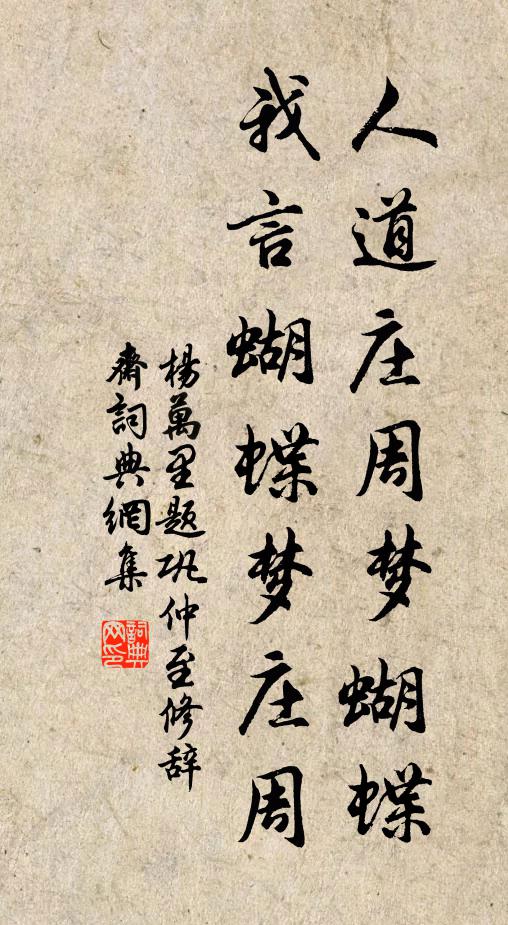 人道庄周梦蝴蝶
我言蝴蝶梦庄周
楊萬里题巩仲至修辞
齋詞典網集
詞典
网印